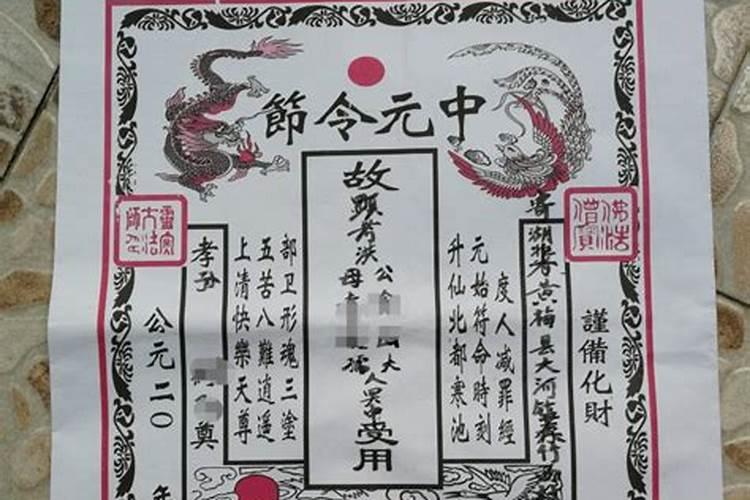 中元令節
佛法
僧寶
謹備化財
湖北黃梅縣大河鎮
度人减罪經
元始符命時刻
升仙北都寒池
故
顯考洪公
大
母
孺人冥中受用
部卫形魂三塗
五苦八難逍遥
上清快樂天尊
孝孙
奠
靈寶
大法
師印
公元二〇
年